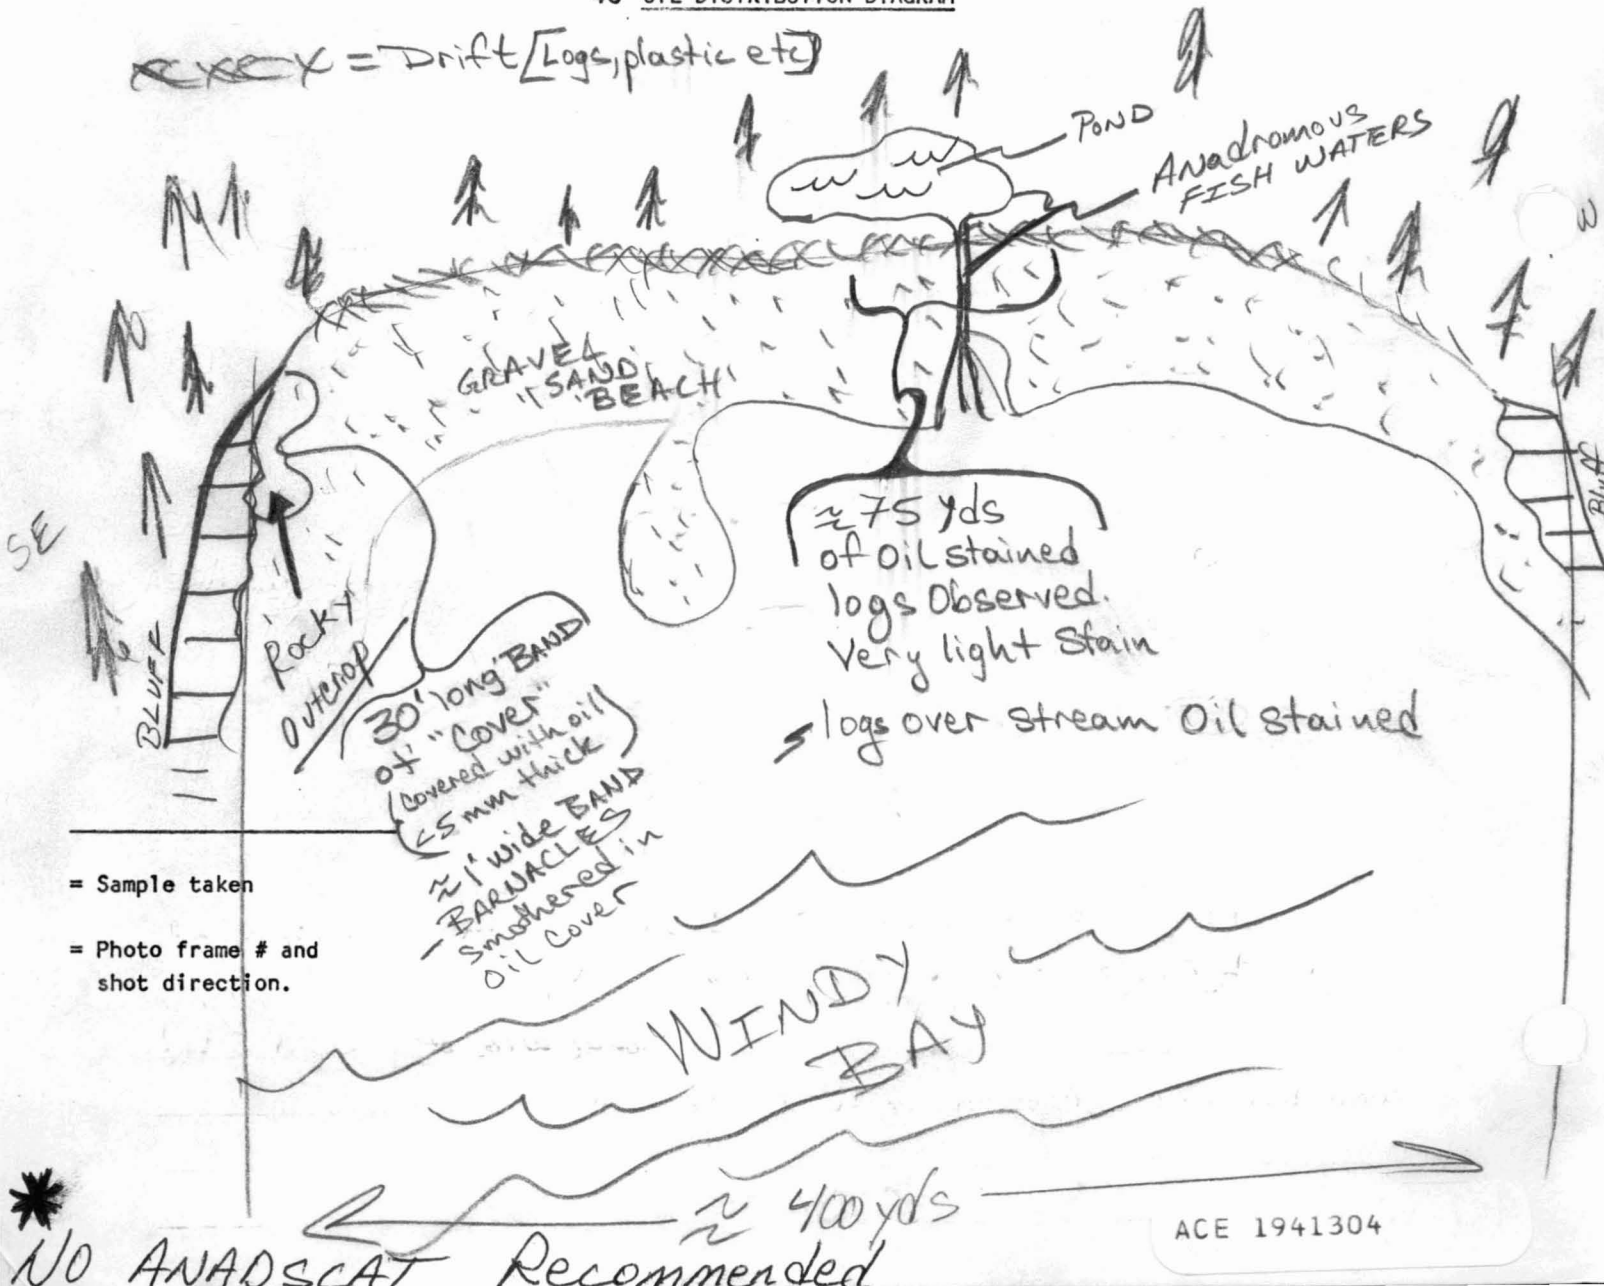 OIL DISTRIBUTION DIAGRAM
xxxx = Drift [Logs, plastic etc]
POND
Anadromous
FISH WATERS
W
GRAVEL
SAND
BEACH
SE
BLUFF
Bluff
Rocky
Outcrop
≈ 75 yds
of Oil stained
logs Observed.
Very light Stain
logs over stream Oil stained
30' long BAND
of "Cover"
(covered with oil)
<5mm thick
≈ 1' wide BAND
- BARNACLES
smothered in
oil cover
= Sample taken
= Photo frame # and
shot direction.
WINDY
BAY
≈ 400 yds
ACE 1941304
* NO ANADSCAT Recommended